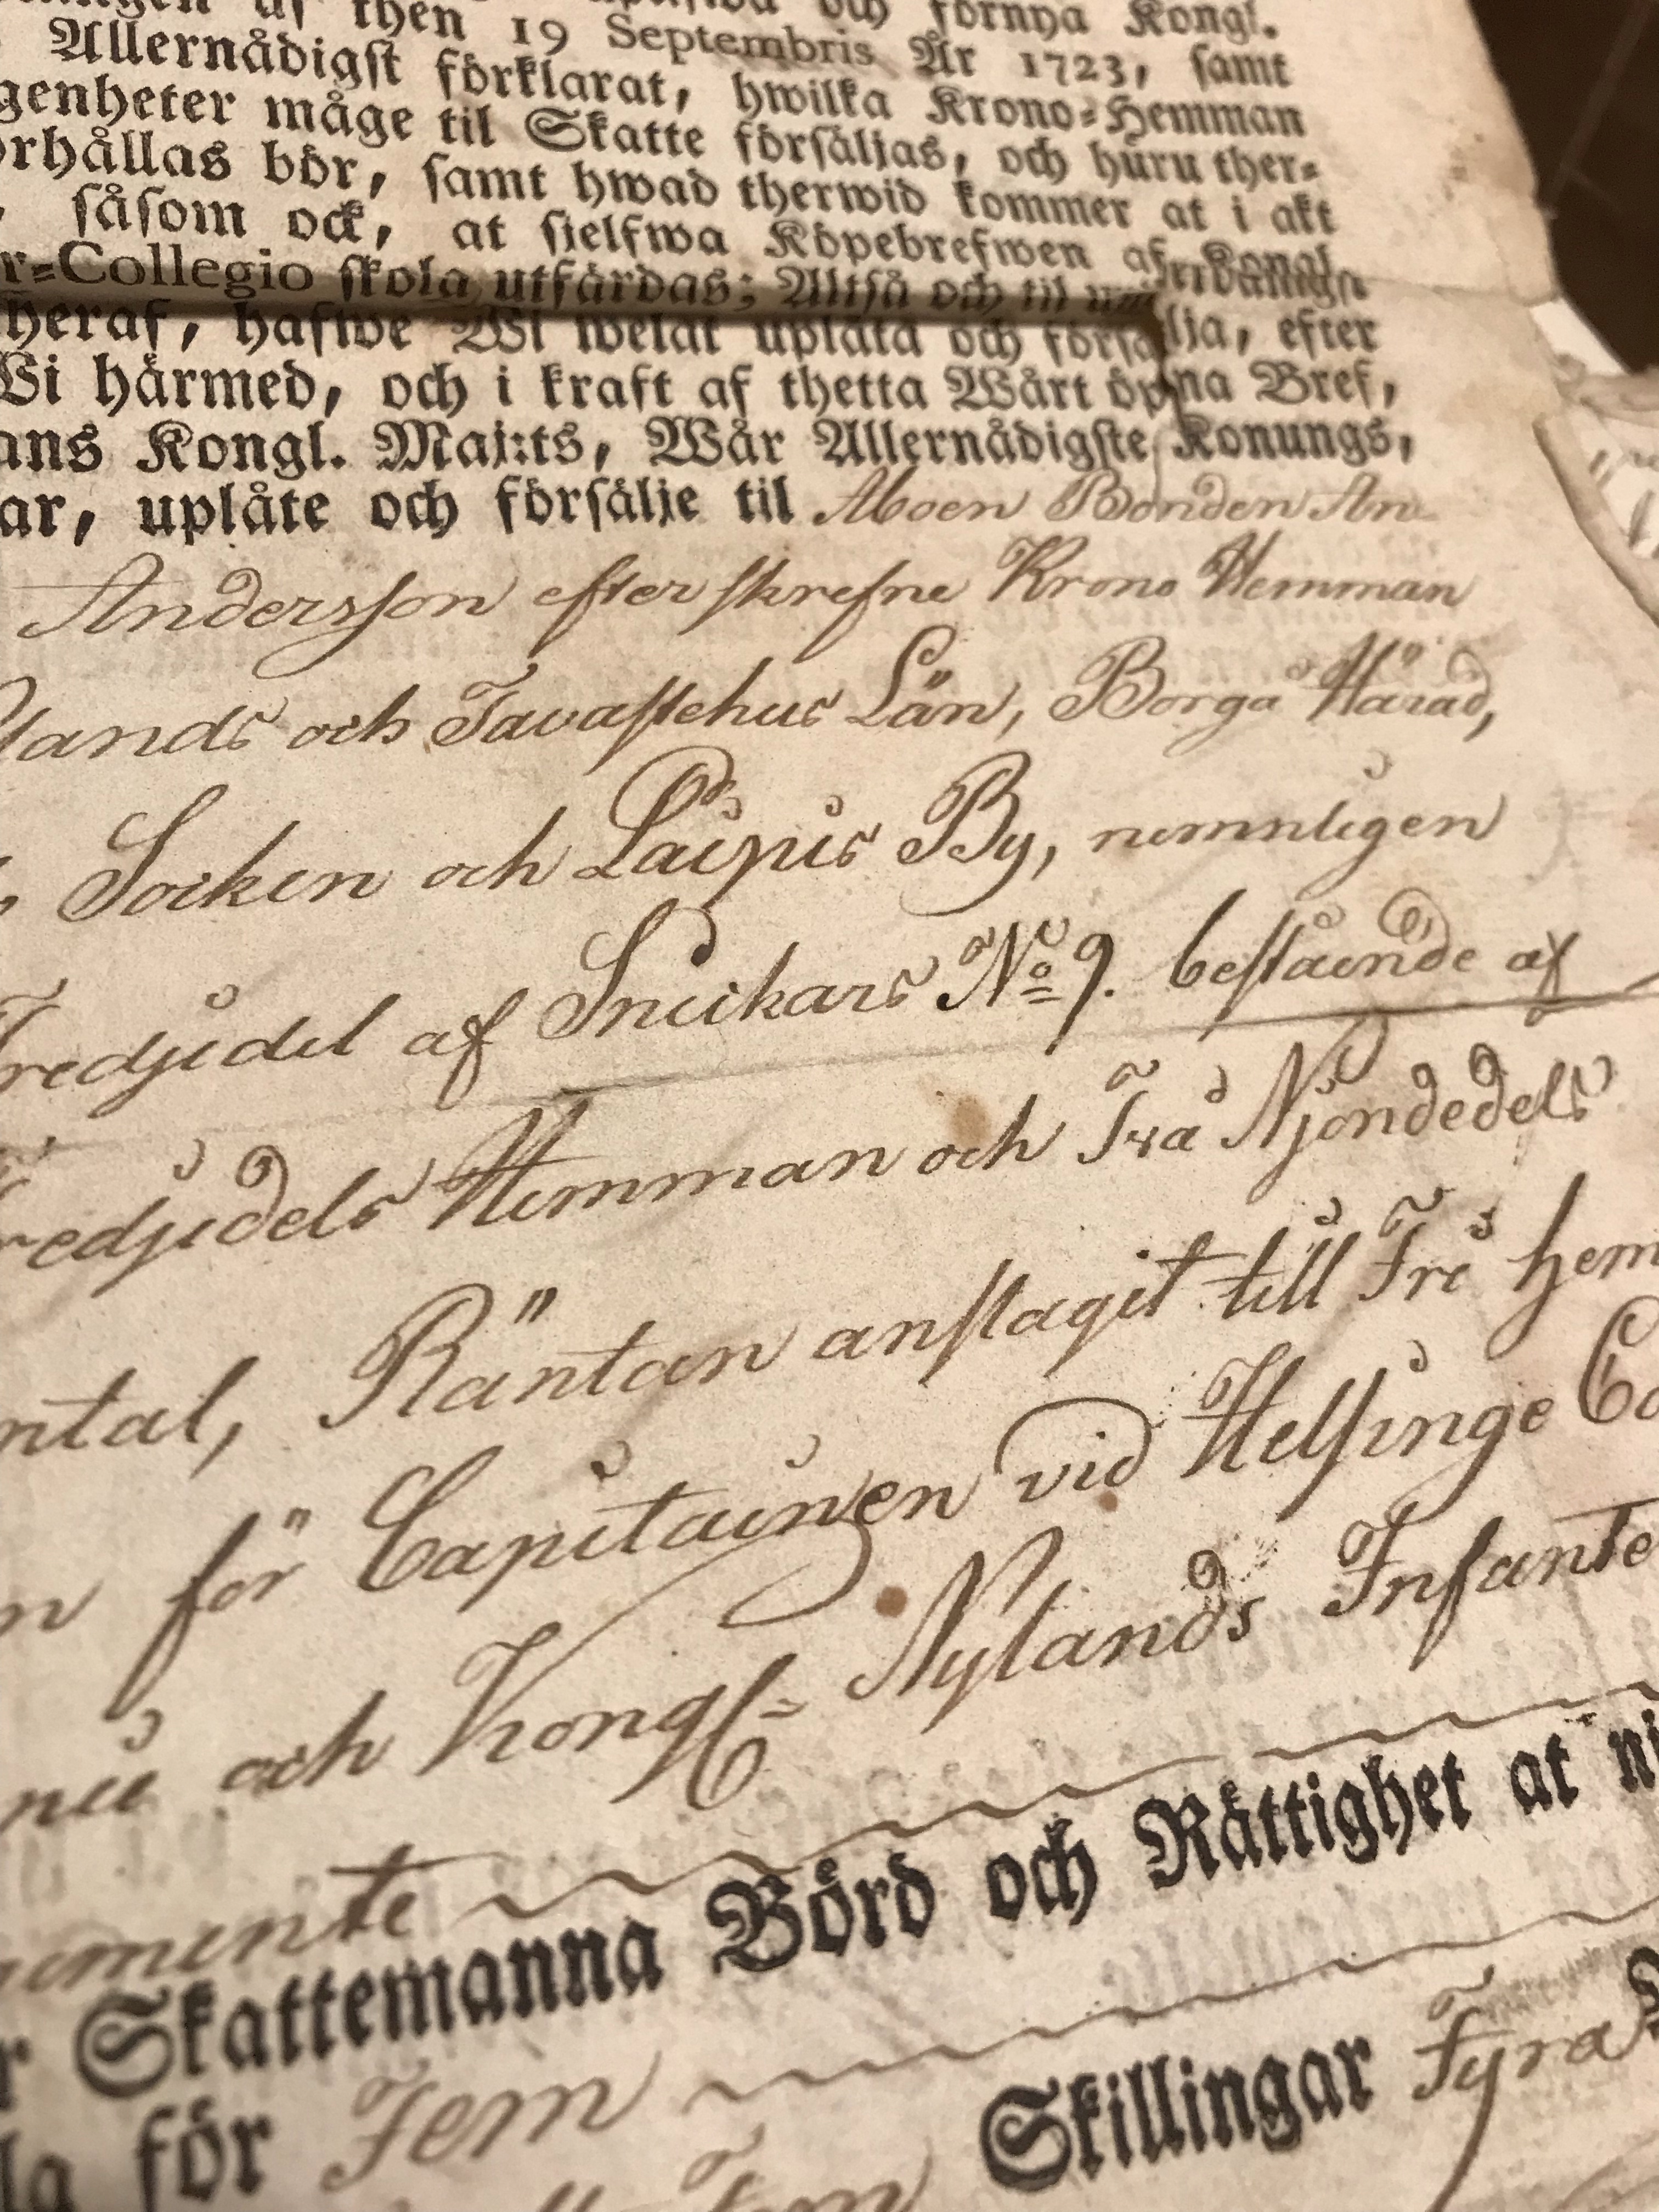 af then 19 Septembris År 1723, samt
Allernådigst förklarat, hwilka Krono-Hemman
genheter måge til Skatte försäljas, och huru ther-
rhållas bör, samt hwad therwid kommer at i akt
såsom ock, at sielfwa Köpebrefwen af Kongl.
r-Collegio skola utfärdas; Altså och til
heraf, hafwe Wi welat uplåta och försälja, efter
Wi härmed, och i kraft af thetta Wårt öpna Bref,
ans Kongl. Maj:ts, Wår Allernådigste Konungs,
ar, uplåte och försälje til Åboen Bonden An-
Andersson efterskrefne Krono Hemman
lands och Tavastehus Län, Borgå Härad,
Socken och Laipis By, nemnligen
Tredjedel af Snickars No 9. bestående af
redjedels Hemman och Två Njondedels
ntal, Räntan anslagit till Fri hem
n för Capitainen vid Helsinge Co
nie och Kongl. Nylands Infante
gemente
r Skattemanna Börd och Rättighet at ni
la för Fem Skillingar Fyra
Fem